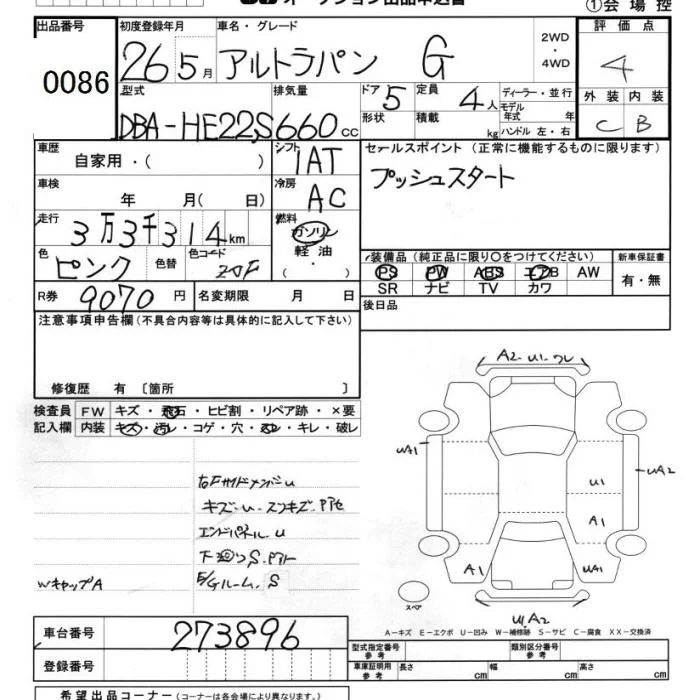 オークション出品申込書 ①会場控
出品番号 初度登録年月 車名・グレード 2WD・4WD 評価点
0086 26 5月 アルトラパン G 4
型式 排気量 ドア 5 定員 4人 ディーラー・並行 外装 内装
DBA-HE22S 660cc 形状 積載 kg モデル年式 年 ハンドル 左・右 C B
車歴 自家用・( ) シフト IAT セールスポイント (正常に機能するものに限ります)
車検 年 月( 日) 冷房 AC プッシュスタート
走行 3万3千314km 燃料 ガソリン 軽油・( )
色 ピンク 色替 色コード ZJF 装備品 (純正品に限り〇をつけてください) 新車保証書
PS PW ABS エアB AW 有・無
SR ナビ TV カワ
R券 9070円 名変期限 月 日 後日品
注意事項申告欄 (不具合内容等は具体的に記入して下さい)
修復歴 有 〔箇所 〕
検査員 FW キズ・飛石・ヒビ割・リペア跡・×要
記入欄 内装 キズ・汚レ・コゲ・穴・ヌレ・キレ・破レ
A2.U1.ワレ
UA1 U1 UA2
A1
A1 UA1
U1A2
スペア
右FサイドメンバーU
キズ-U-スリキズ.Pアセ
エンドパネル.U
下廻りS.Pアト
E/Gルーム.S
WキャップA
A-キズ E-エクボ U-凹み W-補修跡 S-サビ C-腐食 XX-交換済
車台番号 273896 型式指定番号 参考 類別区分番号 参考
登録番号 車庫証明用 参考 長さ cm 幅 cm 高さ cm
希望出品コーナー (コーナーは各会場により異なります。)